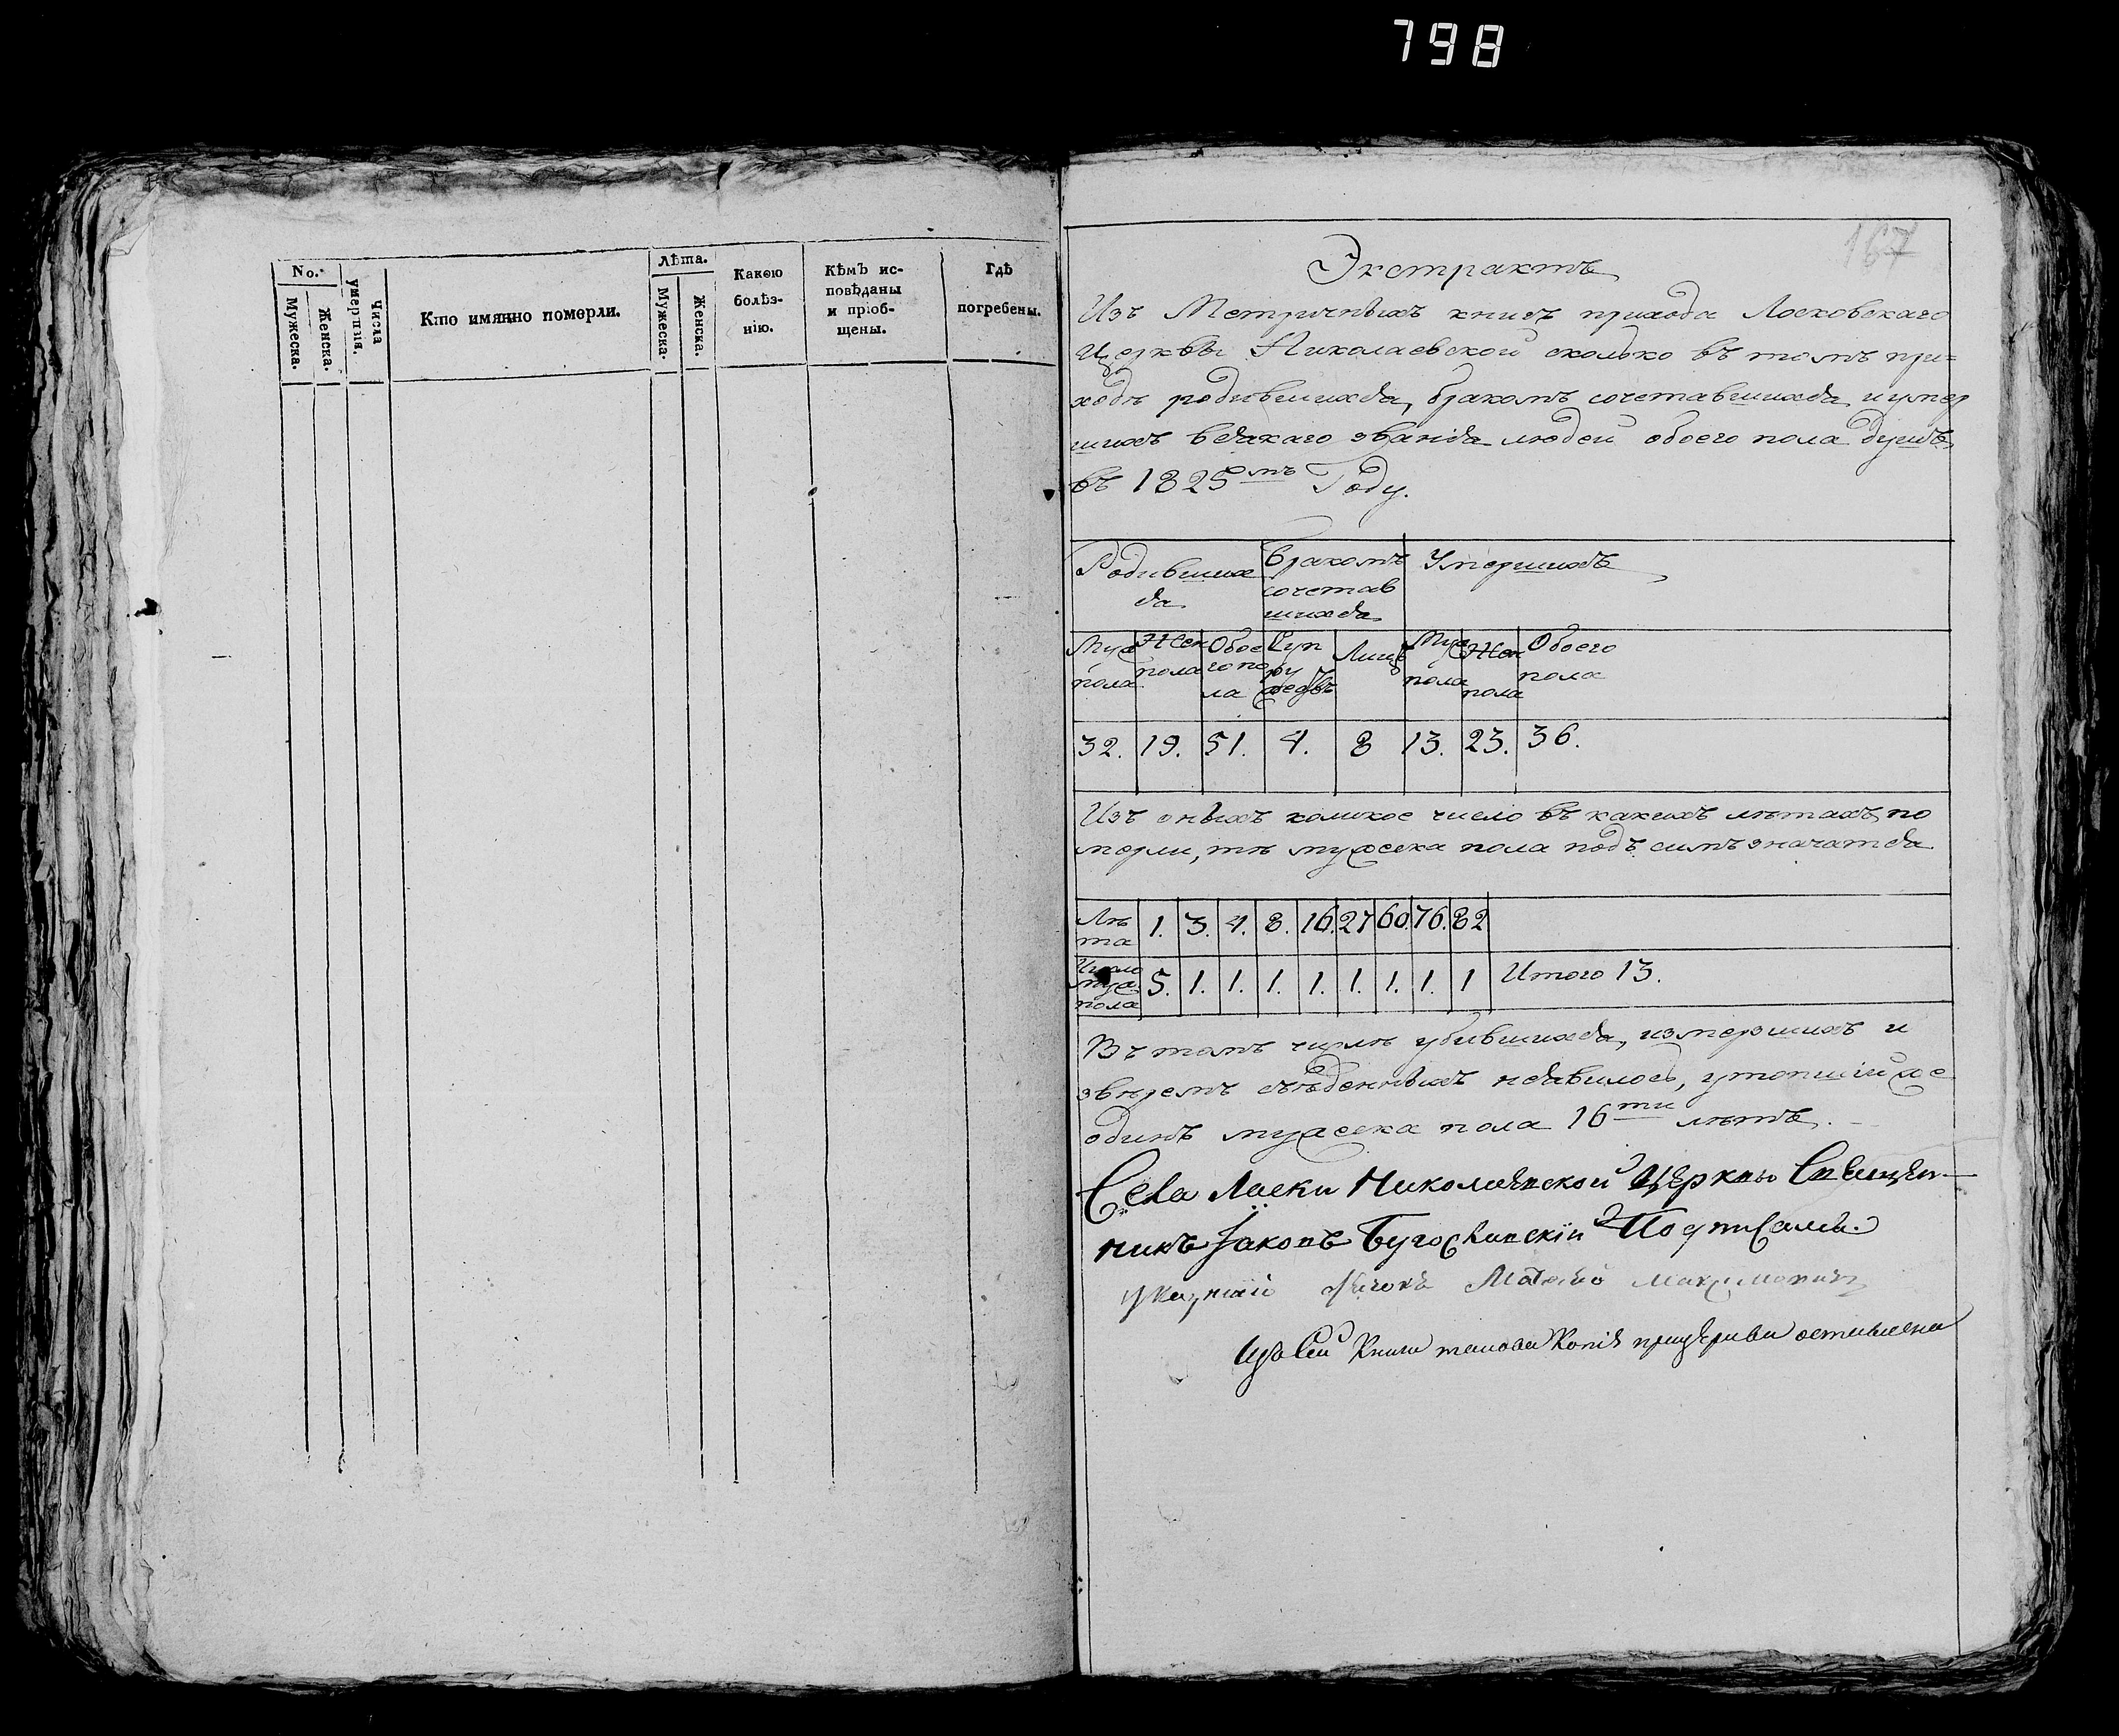 798
No.
Мужеска.
Женска.
Числа умершiя.
Кто имянно померли.
Лѣта.
Мужеска.
Женска.
Какою болѣз-
нiю.
Кѣмъ ис-
повѣданы
и прiоб-
щены.
Гдѣ
погребены.
167
Экстрактъ
Изъ Метричныхъ книгъ прихода Лосковскаго
Церкви Николаевской сколько въ томъ при=
ходѣ родившихся, бракомъ сочетавшихся и умер
шихъ всякаго званiя людей обоего пола душъ
въ 1825мъ Году.
Родивших
ся
Бракомъ
сочетав
шихся
Умершихъ
Муж пола
Жен пола
Обое го по ла
Суп ру жествъ
Лицъ
Муж пола
Жен пола
Обоего пола
32. 19. 51. 4. 8 13. 23. 36.
Изъ оныхъ коликое число въ какихъ лѣтахъ по
мерли, тѣ мужеска пола подъ симъ значатся
Лѣ та 1. 3. 4. 8. 16. 27 60. 76. 82
Число муж. пола 5. 1. 1. 1. 1. 1. 1. 1. 1 Итого 13.
Въ томъ числѣ убившихся, измерзшихъ и
звѣремъ съѣденныхъ неявилось, утопшiй же
одинъ мужеска пола 16ти лѣтъ.
Села Лоски Николаевской Церквы Священ-
никъ Iаковъ Подписалъ.
Указный Дячокъ Матѳей Максимовичъ
Изъ Сей Книги такова Копiя прицеркви оставлена